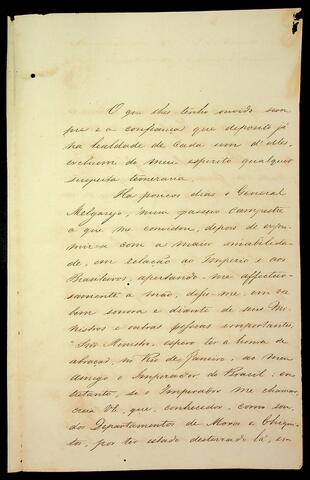 O que lhes tenho ouvido sem
pre e a confiança que deposito já
na lealdade de cada um d'elles,
excluem de meu espirito qualquer
suspeita temeraria.
Ha poucos dias o General
Melgarejo, num passeio campestre
a que me convidou, depois de expri
mir-se com a maior amabilida-
de, em relação ao Imperio e aos
Brasileiros, apertando-me affectuo-
samente a mão, disse-me, em voz
bem sonora e diante de seus Mi-
nistros e outras pessoas importantes:
"Snr Ministro, espero ter a honra de
abraçar, no Rio de Janeiro, ao meu
amigo o Imperador do Brasil; en
tretanto, se o Imperador me chamar,
creia VE. que, conhecedor, como sou,
dos Departamentos de Moxos e Chiqui-
tos, por ter estado desterrado lá, em